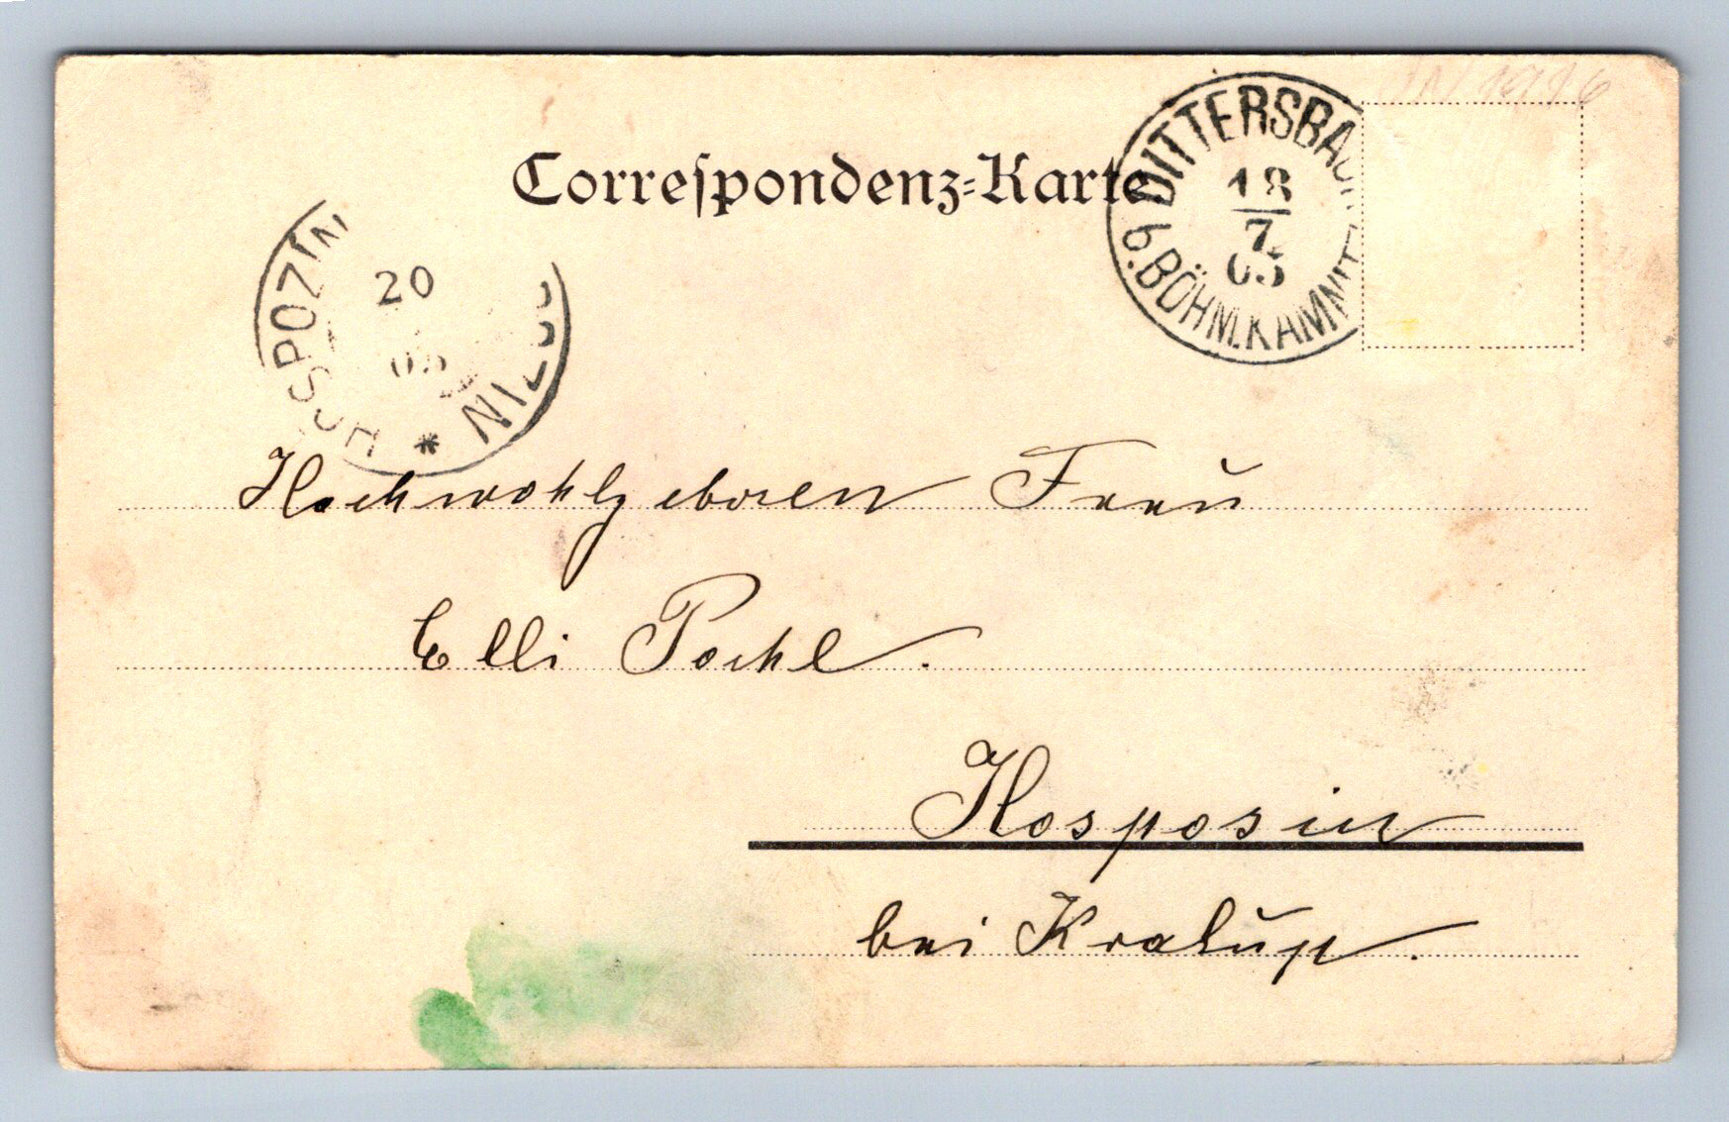 Correspondenz-Karte
DITTERSBACH
b. BÖHM. KAMNITZ
18
7
05
HOSPOZIN
20
05
Hochwohlgeboren Frau
Elli Pochl.
Hosposin
bei Kralup.